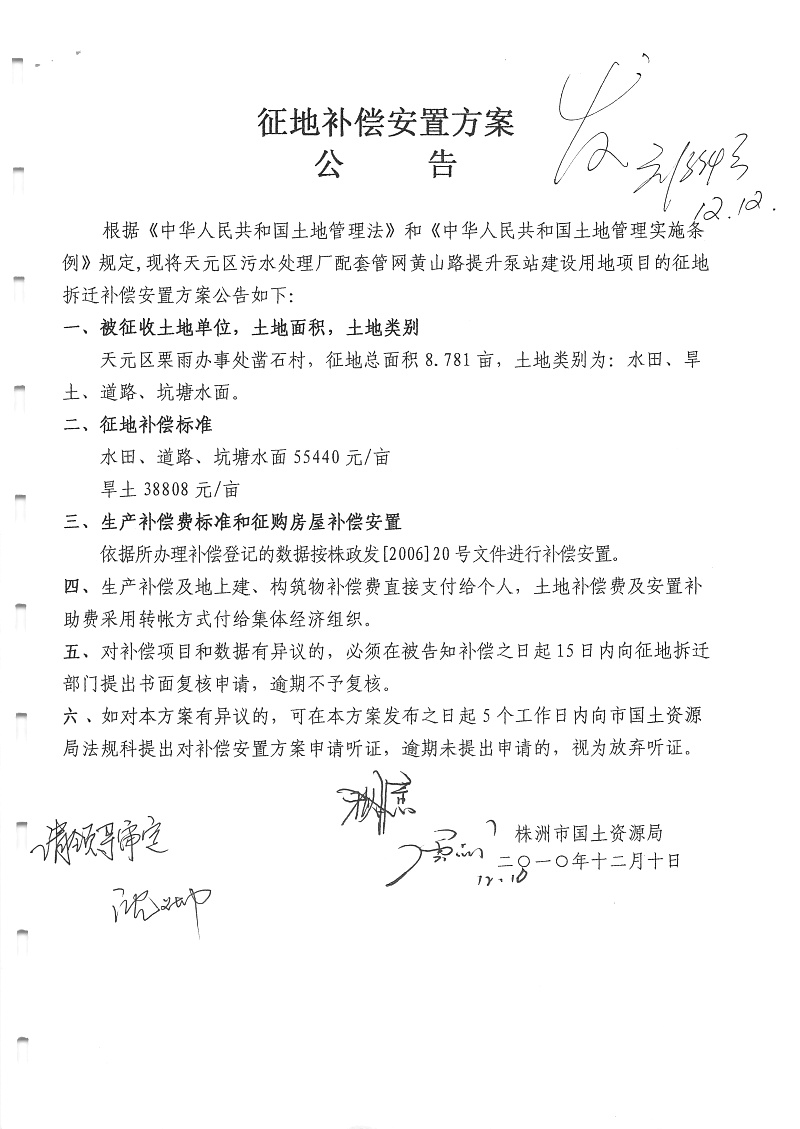 征地补偿安置方案
公 告
发
12.12.
根据《中华人民共和国土地管理法》和《中华人民共和国土地管理实施条
例》规定,现将天元区污水处理厂配套管网黄山路提升泵站建设用地项目的征地
拆迁补偿安置方案公告如下：
一、被征收土地单位，土地面积，土地类别
天元区栗雨办事处凿石村，征地总面积 8.781 亩，土地类别为：水田、旱
土、道路、坑塘水面。
二、征地补偿标准
水田、道路、坑塘水面 55440 元/亩
旱土 38808 元/亩
三、生产补偿费标准和征购房屋补偿安置
依据所办理补偿登记的数据按株政发[2006]20 号文件进行补偿安置。
四、生产补偿及地上建、构筑物补偿费直接支付给个人，土地补偿费及安置补
助费采用转帐方式付给集体经济组织。
五、对补偿项目和数据有异议的，必须在被告知补偿之日起 15 日内向征地拆迁
部门提出书面复核申请，逾期不予复核。
六、如对本方案有异议的，可在本方案发布之日起 5 个工作日内向市国土资源
局法规科提出对补偿安置方案申请听证，逾期未提出申请的，视为放弃听证。
株洲市国土资源局
二〇一〇年十二月十日
12.10
请领导审定